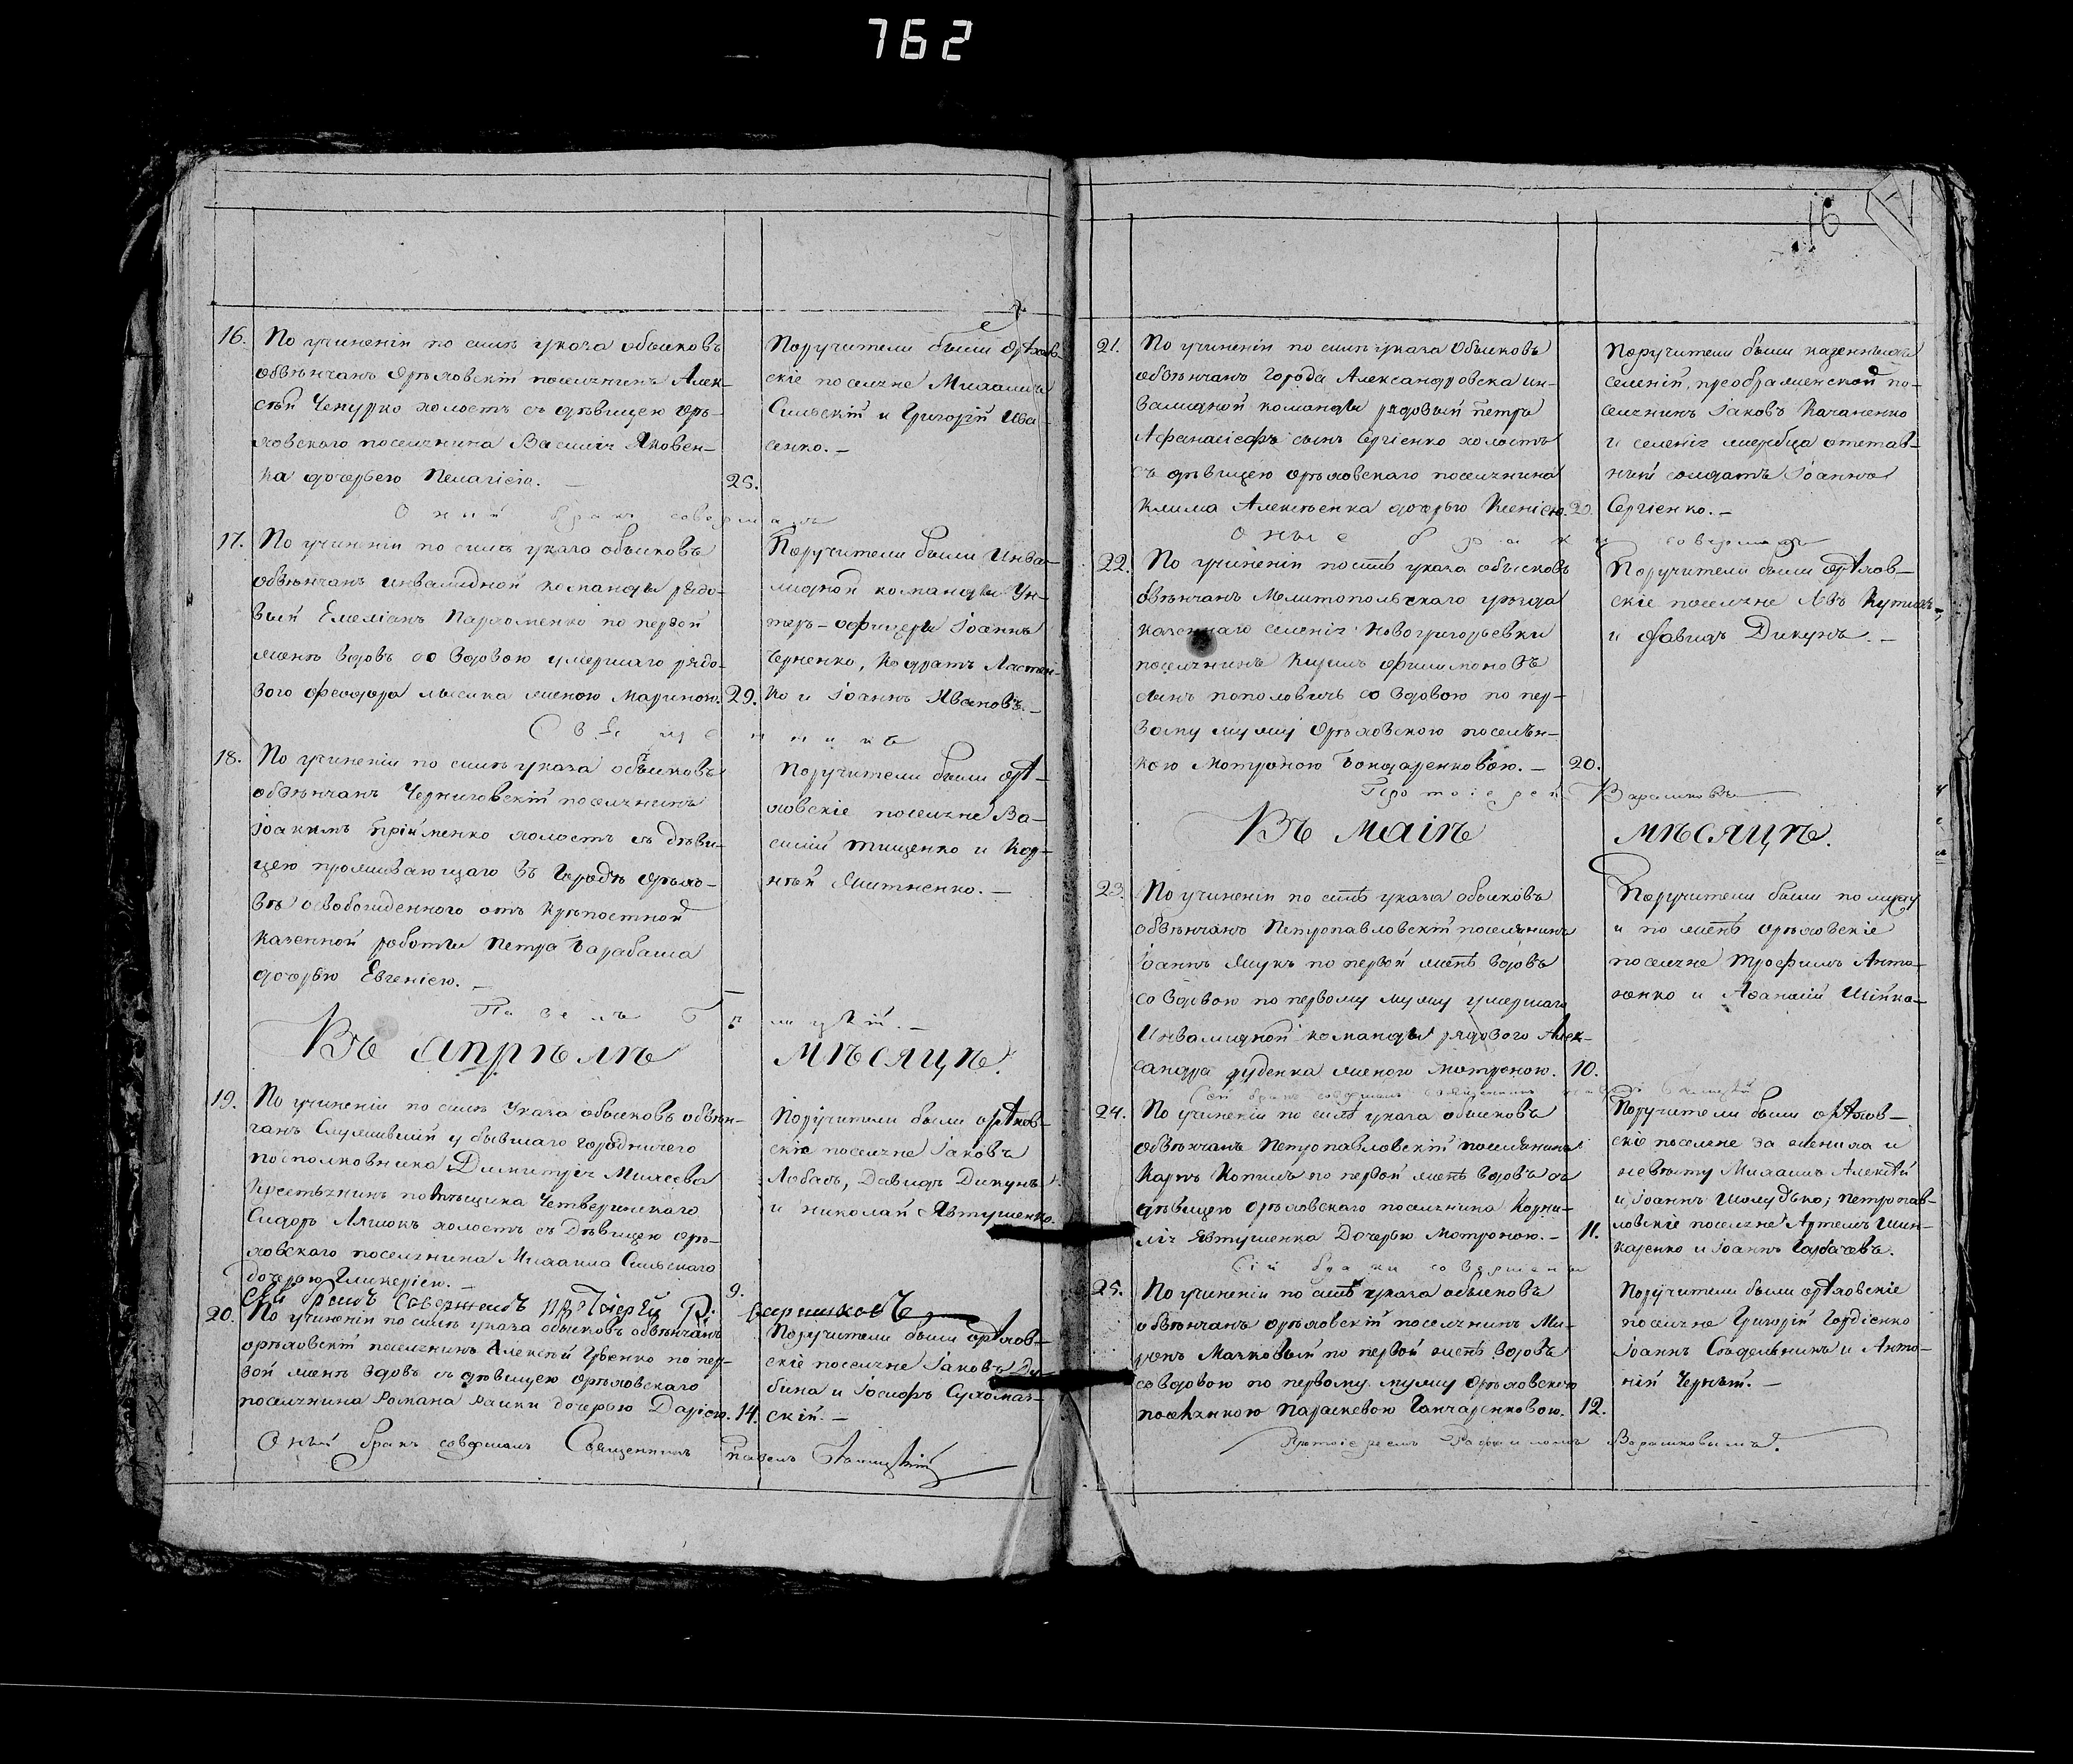 762
16.
16. По учиненіи по силѣ указа обысковъ
обвѣнчанъ Орѣховскій поселянинъ Алек-
сѣй Чепурко холостъ съ дѣвицею орѣ-
ховского поселянина Василія Яковен-
ка дочерью Пелагіею. — 25.
Поручители были орѣхов-
скіе поселяне Михаилъ
Сильскій и Григорій Ива-
сенко. —
Оный бракъ совершалъ
17. По учиненіи по силѣ указа обысковъ
обвѣнчанъ инвалидной команды рядо-
вый Емеліанъ Пархоменко по первой
женѣ вдовъ со вдовою умершаго рядо-
вого Феодора лысика женою Мариною. 29.
Поручители были Инва-
лидной команды Ун-
теръ-офицеры Іоаннъ
Черненко, Кодратъ
ко и Іоаннъ Ивановъ. —
Священникъ
18. По учиненіи по силѣ указа обысковъ
обвѣнчанъ Черниговскій поселянинъ
Іоакимъ холостъ съ дѣви-
цею проживающаго въ городѣ орѣхо-
вѣ освобожденного отъ крѣпостной
казенной роботы Петра Барабаша
дочерью Евгеніею. —
Поручители были орѣ-
ховскіе поселяне Ва-
силій Тищенко и Кор-
нѣй Житненко. —
Павелъ
Въ апрѣлѣ мѣсяцѣ.
19. По учиненіи по силѣ Указа обысковъ обвѣн-
чанъ Служившій у бывшаго городничего
подполковника Димитрія Михеева
Крестьянинъ помѣщика Четверинского
Сидоръ Ляшокъ холостъ съ Дѣвицею орѣ-
ховского поселянина Михаила Сильского
дочерью Гликеріею. — 9.
Поручители были орѣхов-
скіе поселяне Іаковъ
Лобасъ, Давидъ Дикунъ
и Николай Явтушенко.
Сей бракъ совершилъ протоіерей Р. Варшковъ
20. По учиненіи по силѣ указа обысковъ обвѣнчанъ
орѣховскій поселянинъ Алексѣй по пер-
вой женѣ вдовъ съ дѣвицею орѣховского
поселянина Романа дочерью Даріею. 14.
Поручители были орѣхов-
скіе поселяне Іаковъ Ду-
бина и Іосифъ Сухомлин-
скій. —
Оный бракъ совершалъ Священникъ Павелъ
21. По учиненіи по силѣ указа Обысковъ
обвѣнчанъ города Александровска ин-
валидной команды рядовый Петръ
Афанасіефъ сынъ Сергіенко холостъ
съ дѣвицею орѣховского поселянина
Клима Алексѣенка дочерью Ксеніею. 20.
Поручители были казенныхъ
селеній, преображенской по-
селянинъ Іаковъ Качаненко
и селенія отстав-
ный солдатъ Іоаннъ
Сергіенко. —
Оные браки совершалъ
22. По учиненіи по силѣ указа обысковъ
обвѣнчанъ Мелитопольского уѣзда
казеннаго селенія Новогригорьевки
поселянинъ Кирилъ филимоновъ
сынъ поповичъ со вдовою по пер-
вому мужу Орѣховского поселян-
кою Мотроною Бондаренковою. — 20.
Поручители были орѣхов-
скіе поселяне Левъ
и Давидъ Дикунъ. —
Протоіерей Варшковъ
Въ маіѣ мѣсяцѣ.
23. По учиненіи по силѣ указа обысковъ
обвѣнчанъ Петропавловскій поселянинъ
Іоаннъ Жукъ по первой женѣ вдовъ
со вдовою по первому мужу умершаго
Инвалидной команды рядового Алек-
сандра руденка женою Мотроною. 10.
Поручители были по мужу
и по женѣ орѣховскіе
поселяне Трофимъ Анто-
ненко и Афанасій Шійка-
Сей бракъ совершалъ священникъ Павелъ
24. По учиненіи по силѣ указа обысковъ
обвѣнчанъ Петропавловскій поселянинъ
Карпъ Копилъ по первой женѣ вдовъ съ
дѣвицею орѣховского поселянина Корни-
лія Явтушенка Дочерью Мотроною. — 11.
Поручители были орѣхов-
скіе поселяне за жениха и
невѣсту Михаилъ Алексѣй
и Іоаннъ Шолудько; петропав-
ловскіе поселяне Артемъ Шин-
каренко и Іоаннъ Горбачевъ.
Сіи браки совершены
25. По учиненіи по силѣ указа обысковъ
обвѣнчанъ орѣховскій поселянинъ Ми-
ронъ Мачковый по первой женѣ вдовъ
со вдовою по первому мужу Орѣховскою
поселянкою Параскевою Ганчаренковою. 12.
Поручители были орѣховскіе
поселяне Григорій Гордіенко
Іоаннъ Сѣдельникъ и Анто-
ній Чернѣй. —
Протоіереемъ Варшковымъ.